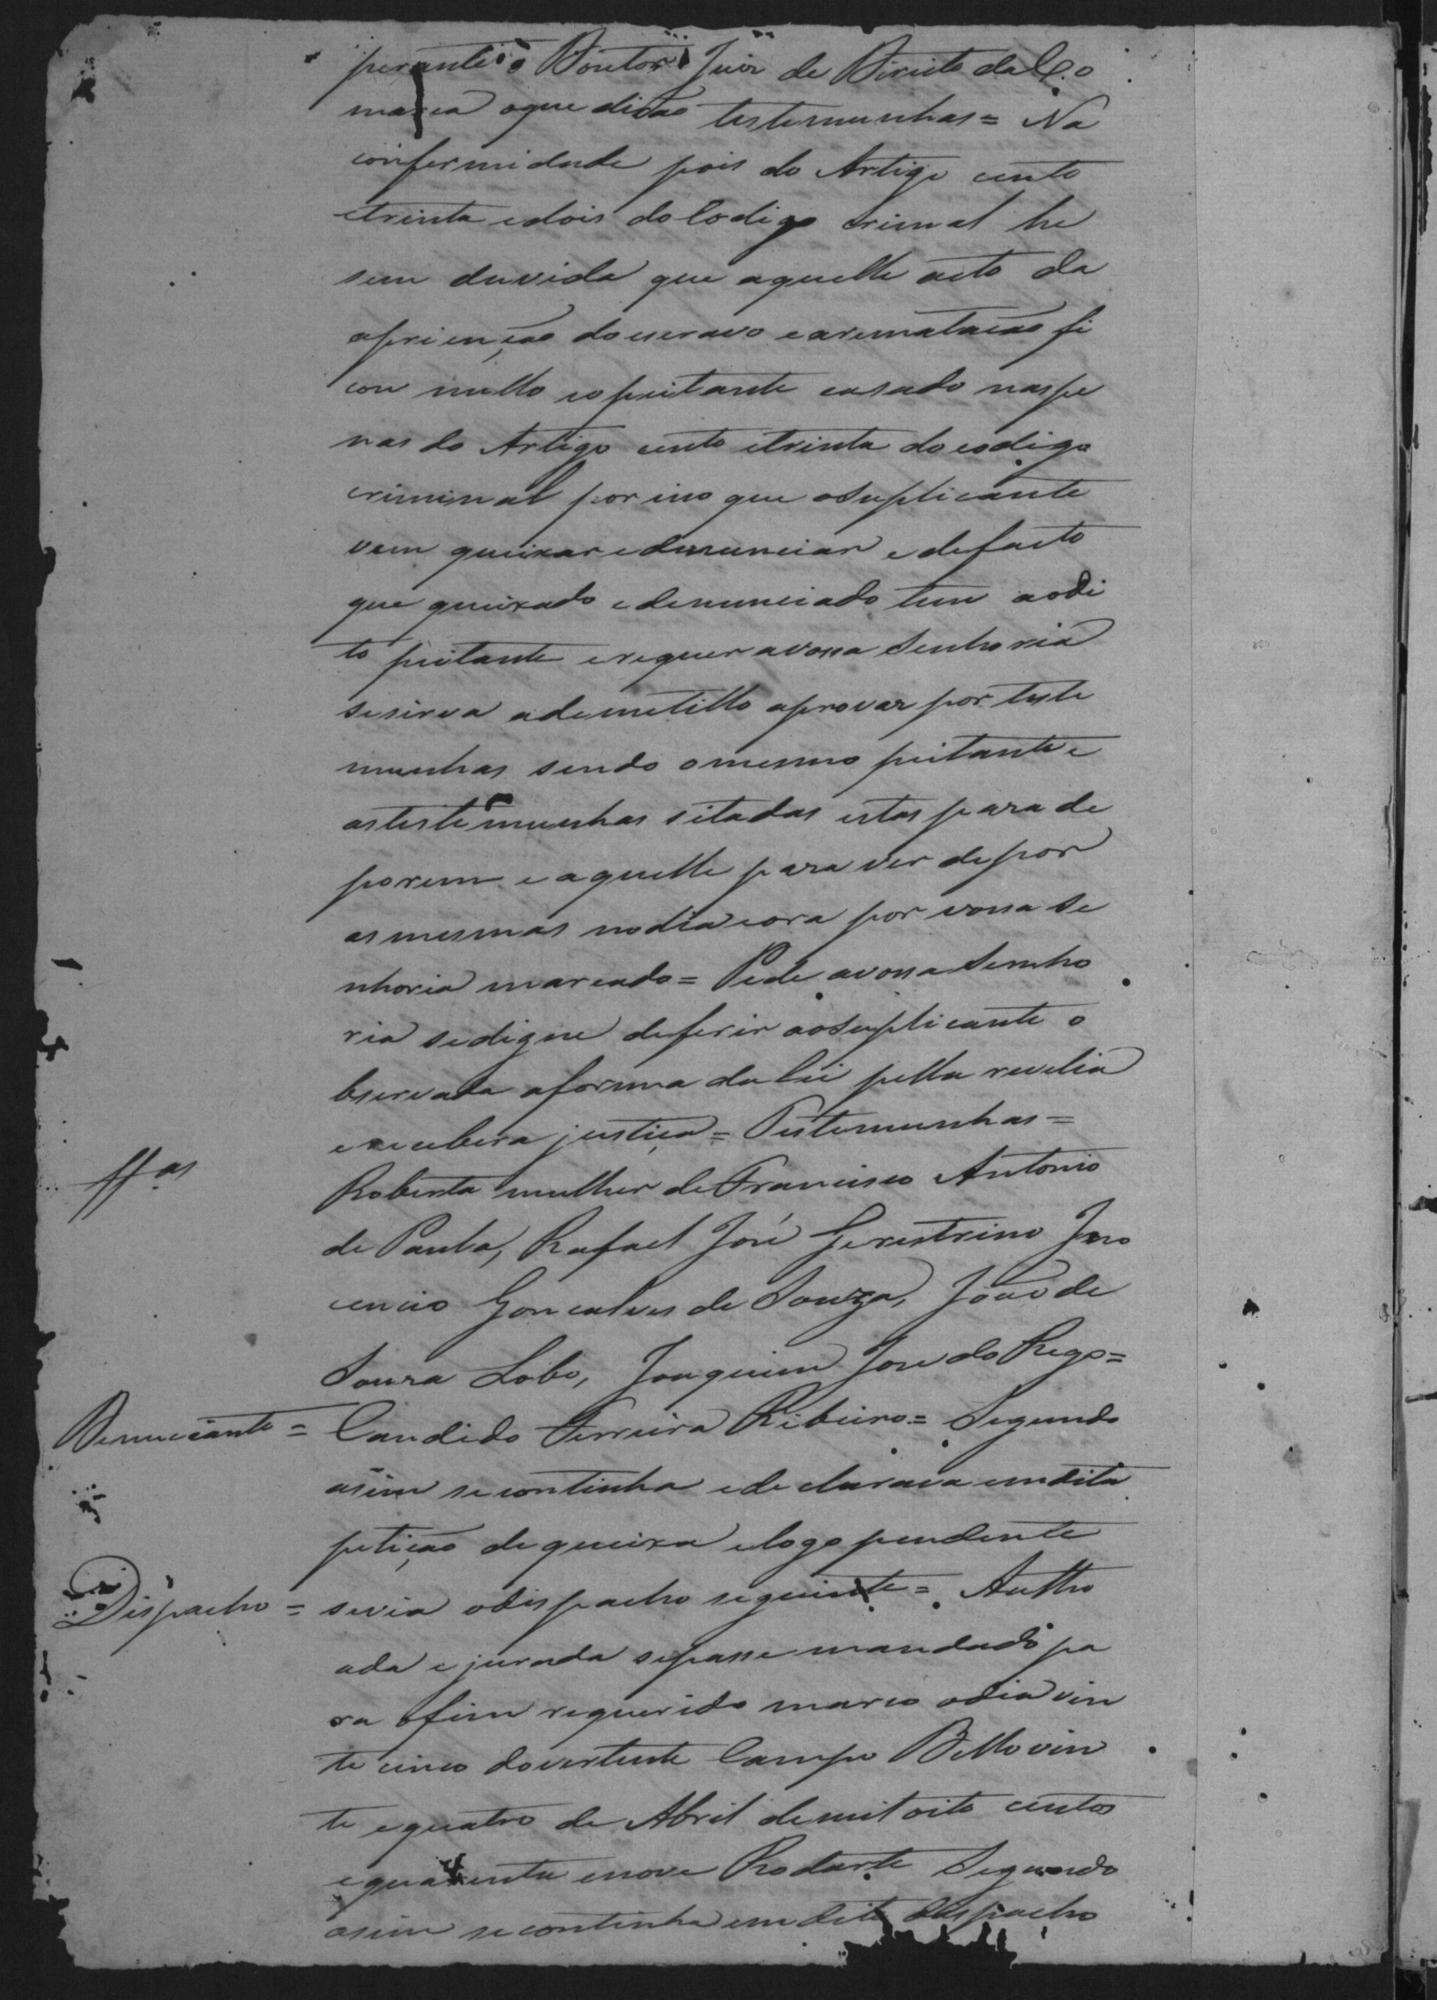 perante o Doutor Juiz de Direito da Co
marca o que dirão testemunhas = Na
conformidade pois do Artigo cento
etrinta edois do Codigo Crimnal he
sem duvida que aquelle acto da
do escravo earematacão fi
cou nullo eopeitante casado naspe
nas do Artigo cento etrinta do codigo
criminal por isso que oSuplicante
vem queixar edenunciar e defacto
que queixado edenunciado tem aodi
to peitante erequer avossa Senhoria
sesirva ademetillo aprovar por teste
munhas sendo omesmo peitante e
astestemunhas sitadas estas para de
porem e aquelle para ver depor
asmesmas nodia eora por vossa Se
nhoria marcado = Pede avossa Senho
ria sedigne deferir aoSuplicante o
bservada aforma da Lei pella revelia
erecebera justiça = Testemunhas =
ttas
Roberta mulher de Francisco Antonio
de Paula, Rafael José Gerestrino Jno
cencio Goncalves de Souza, João de
Souza Lobo, Joaquim Jose do Rego =
Denunciante = Candido Ferreira Ribeiro = Segundo
asim secontinha edeclarava emdita
petiçao de queixa elogo pendente
Dispacho = sevia odispacho seguinte = Autho
ada e jurada sepasse mandado pa
ra ofim requerido marco odia vin
te cinco dovertente Campo Bello vin
te equatro de Abril demil oito centos
equarenta enove Rodarte Segundo
asim secontinha em dito dispacho